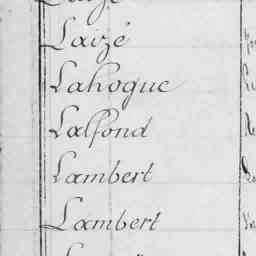 Laizé
Lahogue
Lalfond
Lambert
Lambert